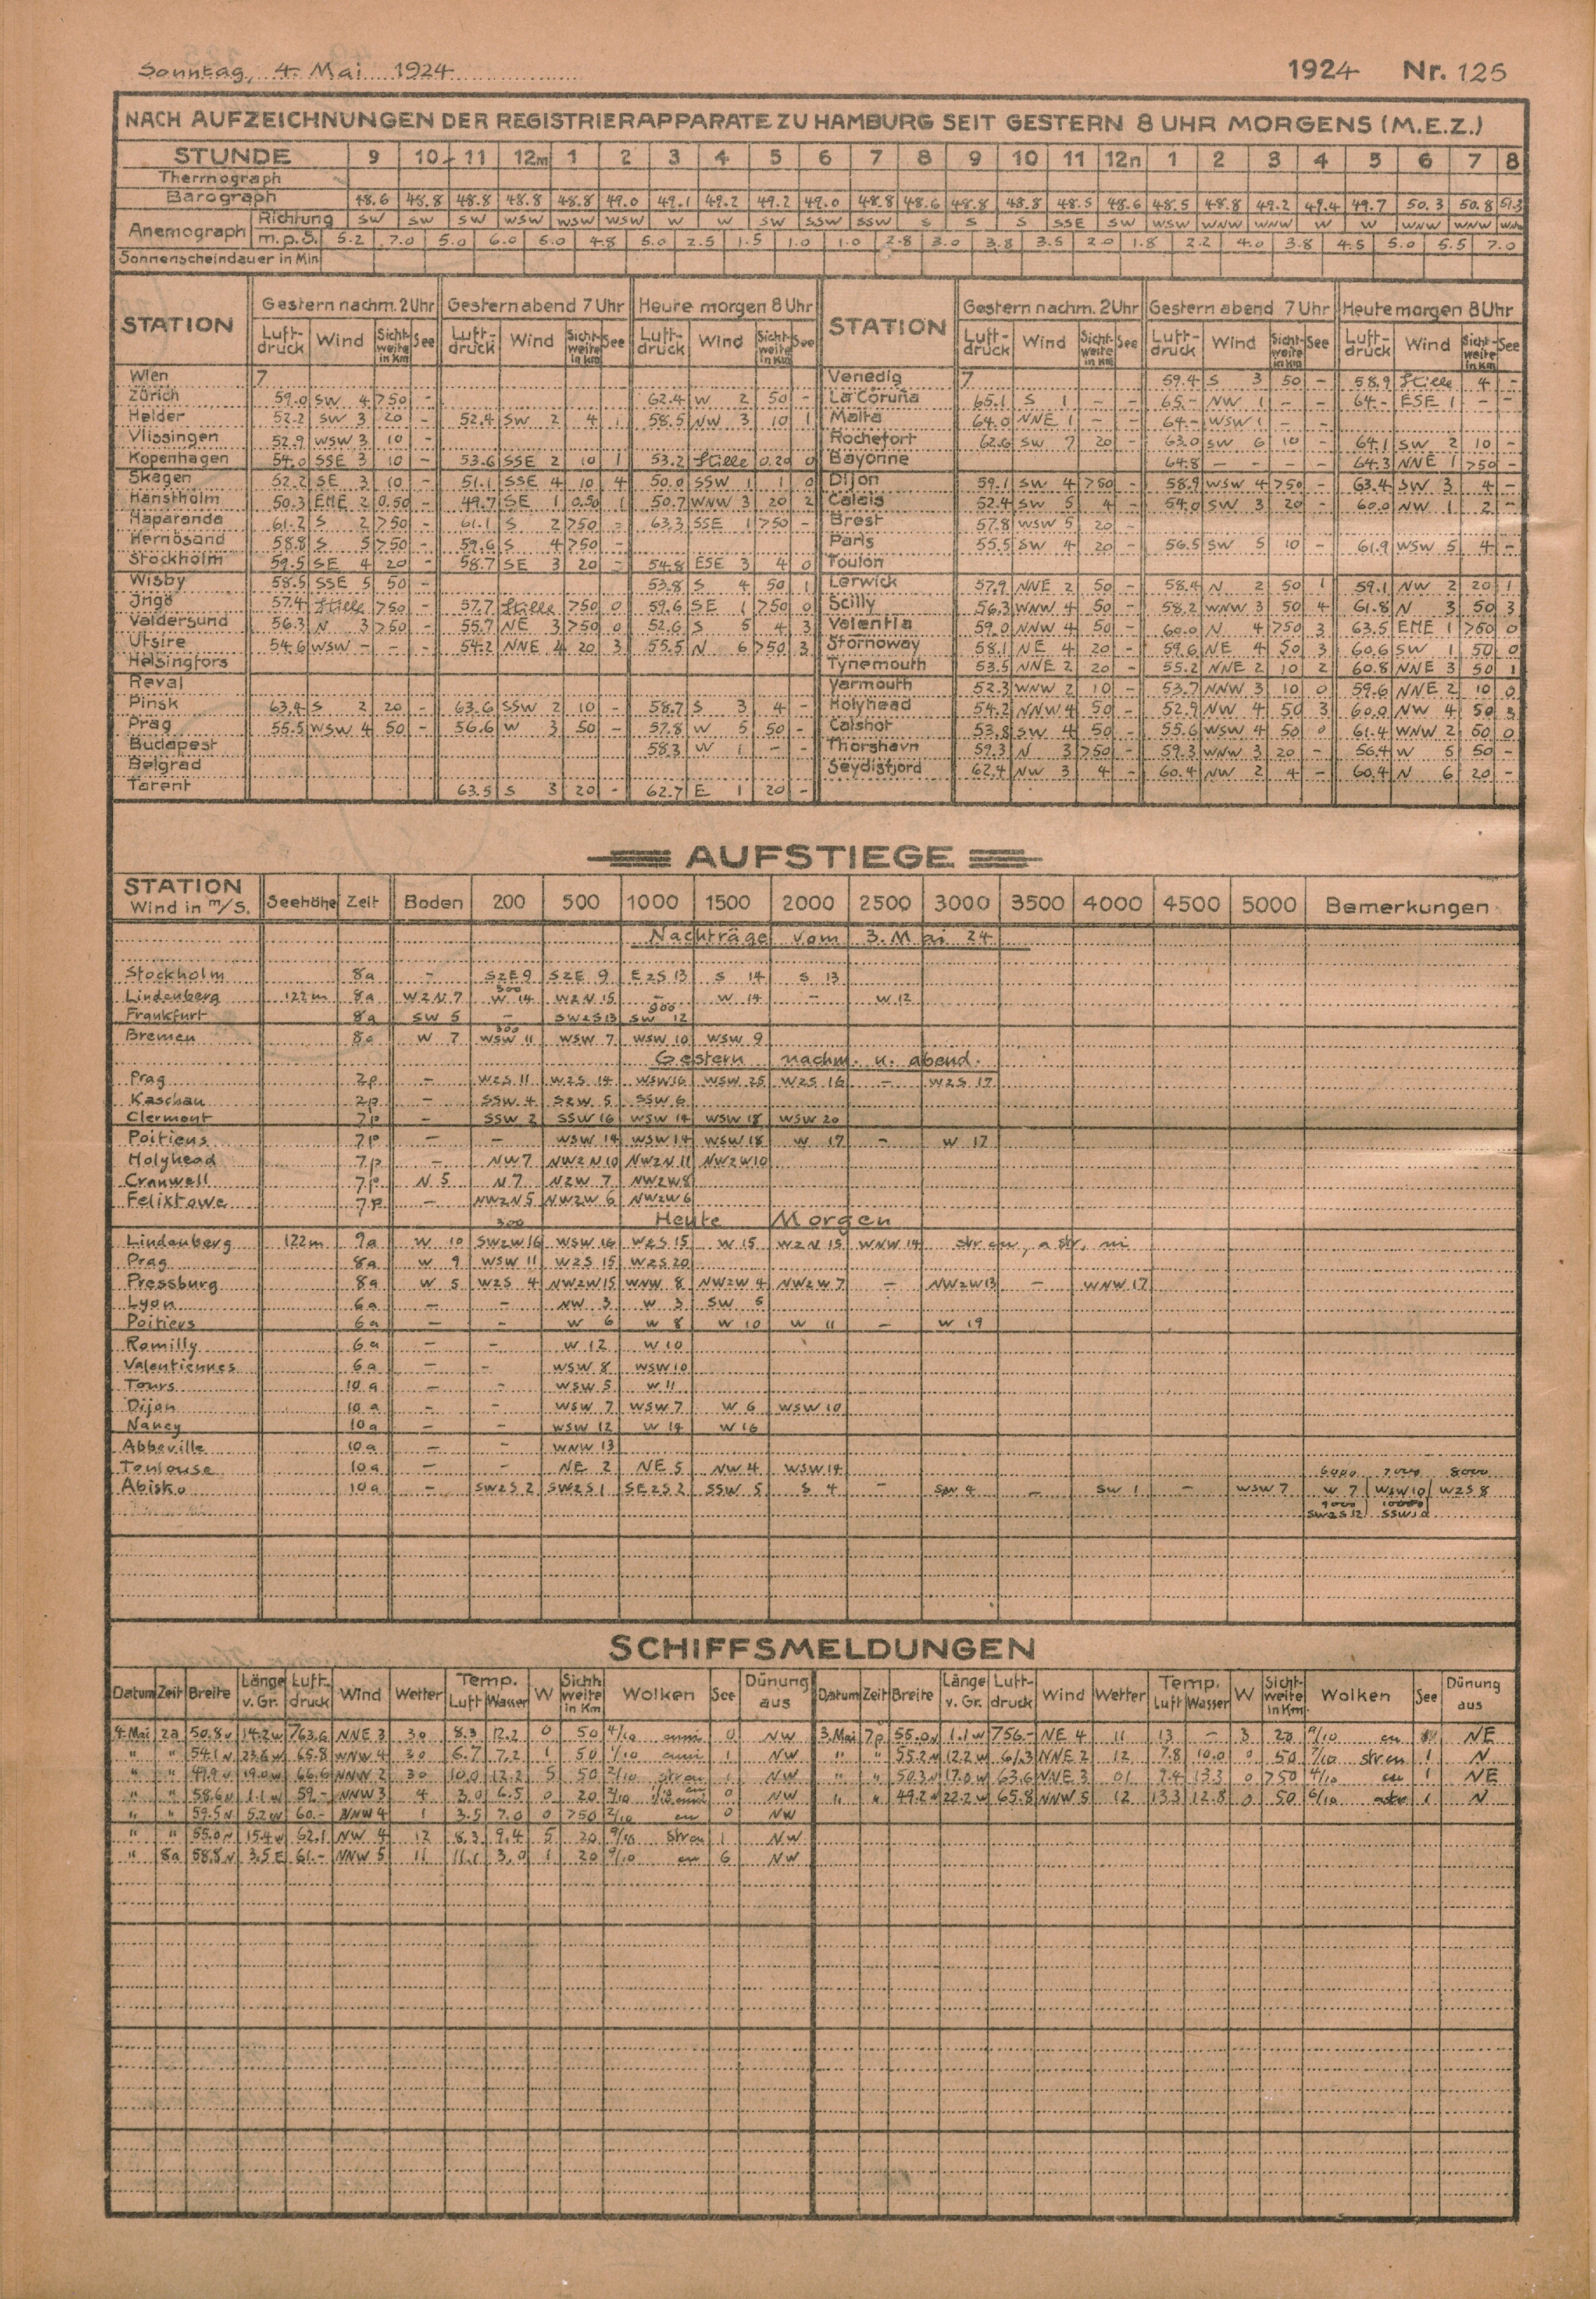 Sonntag, 4. Mai 1924 1924 Nr. 125
NACH AUFZEICHNUNGEN DER REGISTRIERAPPARATE ZU HAMBURG SEIT GESTERN 8 UHR MORGENS (M.E.Z.)
STUNDE 9 10 11 12m 1 2 3 4 5 6 7 8 9 10 11 12n 1 2 3 4 5 6 7 8
Thermograph
Barograph 48.6 48.8 48.8 48.8 48.8 49.0 49.1 49.2 49.2 49.0 48.8 48.6 48.8 48.8 48.5 48.6 48.5 48.8 49.2 49.4 49.7 50.3 50.8 51.3
Anemograph Richtung SW SW SW WSW WSW WSW W W SW SSW SSW S S S SSE SW WSW WNW WNW W W WNW WNW WNW
m.p.S. 5.2 7.0 5.0 6.0 5.0 4.8 5.0 2.5 1.5 1.0 1.0 2.8 3.0 3.8 3.5 2.0 1.8 2.2 4.0 3.8 4.5 5.0 5.5 7.0
Sonnenscheindauer in Min
STATION Gestern nachm. 2 Uhr Gestern abend 7 Uhr Heute morgen 8 Uhr STATION Gestern nachm. 2 Uhr Gestern abend 7 Uhr Heute morgen 8 Uhr
Luft-druck Wind Sicht-weite in Km See Luft-druck Wind Sicht-weite in Km See Luft-druck Wind Sicht-weite in Km See Luft-druck Wind Sicht-weite in Km See Luft-druck Wind Sicht-weite in Km See Luft-druck Wind Sicht-weite in Km See
Wien 7 Venedig 7 59.4 S 3 50 - 58.9 Stille 4 -
Zürich 59.0 SW 4 >50 - 62.4 W 2 50 - La Coruña 65.1 S 1 - - 65.- NW 1 - - 64.- ESE 1 - -
Helder 52.2 SW 3 20 - 52.4 SW 2 4 1 58.5 NW 3 10 1 Malta 64.0 NNE 1 - - 64.- WSW 1 - -
Vlissingen 52.9 WSW 3 10 - Rochefort 62.6 SW 7 20 - 63.0 SW 6 10 - 64.1 SW 2 10 -
Kopenhagen 54.0 SSE 3 10 - 53.6 SSE 2 10 1 53.2 Stille 0.20 0 Bayonne 64.8 - - - 64.3 NNE 1 >50 -
Skagen 52.2 SE 3 10 - 51.1 SSE 4 10 4 50.0 SSW 1 1 0 Dijon 59.1 SW 4 >50 - 58.9 WSW 4 >50 - 63.4 SW 3 4 -
Hanstholm 50.3 ENE 2 0.50 - 49.7 SE 1 0.50 1 50.7 WNW 3 20 2 Calais 52.4 SW 5 4 - 54.0 SW 3 20 - 60.0 NW 1 2 -
Haparanda 61.2 S 2 >50 - 61.1 S 2 >50 - 63.3 SSE 1 >50 - Brest 57.8 WSW 5 20 -
Hernösand 58.8 S 5 >50 - 59.6 S 4 >50 - Paris 55.5 SW 4 20 - 56.5 SW 5 10 - 61.9 WSW 5 4 -
Stockholm 59.5 SE 4 20 - 58.7 SE 3 20 - 54.8 ESE 3 4 0 Toulon
Wisby 58.5 SSE 5 50 - 53.8 S 4 50 1 Lerwick 57.9 NNE 2 50 - 58.4 N 2 50 1 59.1 NW 2 20 1
Ingö 57.4 Stille >50 - 57.7 Stille >50 0 59.6 SE 1 >50 0 Scilly 56.3 WNW 4 50 - 58.2 WNW 3 50 4 61.8 N 3 50 3
Valdersund 56.3 N 3 >50 - 55.7 NE 3 >50 0 52.6 S 5 4 3 Valentia 59.0 NNW 4 50 - 60.0 N 4 >50 3 63.5 ENE 1 >50 0
Utsire 54.6 WSW - - - 54.2 NNE 4 20 3 55.5 N 6 >50 3 Stornoway 58.1 NE 4 20 - 59.6 NE 4 50 3 60.6 SW 1 50 0
Helsingfors Tynemouth 53.5 NNE 2 20 - 55.2 NNE 2 10 2 60.8 NNE 3 50 1
Reval Yarmouth 52.3 WNW 2 10 - 53.7 NNW 3 10 0 59.6 NNE 2 10 0
Pinsk 63.4 S 2 20 - 63.6 SSW 2 10 - 58.7 S 3 4 - Holyhead 54.2 NNW 4 50 - 52.9 NW 4 50 3 60.0 NW 4 50 3
Prag 55.5 WSW 4 50 - 56.6 W 3 50 - 57.8 W 5 50 - Calshot 53.8 SW 4 50 - 55.6 WSW 4 50 0 61.4 WNW 2 50 0
Budapest 58.3 W 1 - - Thorshavn 59.3 N 3 >50 - 59.3 WNW 3 20 - 56.4 W 5 50 -
Belgrad Seydisfjord 62.4 NW 3 4 - 60.4 NW 2 4 - 60.4 N 6 20 -
Tarent 63.5 S 3 20 - 62.7 E 1 20 -
AUFSTIEGE
STATION Wind in m/S. Seehöhe Zeit Boden 200 500 1000 1500 2000 2500 3000 3500 4000 4500 5000 Bemerkungen
Nachträge vom 3. Mai 24
Stockholm 8a - SzE 9 SzE 9 EzS 13 S 14 S 13
Lindenberg 122m 8a WzN 7 300 W 14 WzN 15 - W 14 - W 12
Frankfurt 8a SW 5 - SWzS 13 900 SW 12
Bremen 8a W 7 300 WSW 11 WSW 7 WSW 10 WSW 9
Gestern nachm. u. abend.
Prag 2p - WzS 11 WzS 14 WSW 16 WSW 25 WzS 16 - WzS 17
Kaschau 2p - SSW 4 SzW 5 SSW 6
Clermont 7p - SSW 2 SSW 16 WSW 14 WSW 18 WSW 20
Poitiens 7p - - WSW 14 WSW 14 WSW 18 W 17 - W 17
Holyhead 7p - NW 7 NWzN 10 NWzN 11 NWzW 10
Cranwell 7p N 5 N 7 NzW 7 NWzW 8
Felixtowe 7p - NWzN 5 NWzW 6 NWzW 6
Heute Morgen
Lindenberg 122m 9a W 10 300 SWzW 16 WSW 16 WzS 15 W 15 WzN 15 WNW 14 str cu, a str, ni
Prag 8a W 9 WSW 11 WzS 15 WzS 20
Pressburg 8a W 5 WzS 4 NWzW 15 WNW 8 NWzW 4 NWzW 7 - NWzW 13 - WNW 17
Lyon 6a - - NW 3 W 3 SW 5
Poitiers 6a - - W 6 W 8 W 10 W 11 - W 19
Romilly 6a - - W 12 W 10
Valentiennes 6a - - WSW 8 WSW 10
Tours 10a - - WSW 5 W 11
Dijon 10a - - WSW 7 WSW 7 W 6 WSW 10
Nancy 10a - - WSW 12 W 14 W 16
Abbeville 10a - - WNW 13
Toulouse 10a - - NE 2 NE 5 NW 4 WSW 14
6000 7000 8000
Abisko 10a - SWzS 2 SWzS 1 SEzS 2 SSW 5 S 4 - SW 4 - SW 1 - WSW 7 W 7 WSW 10 WzS 8
9000 10000
SWzS 12
SCHIFFSMELDUNGEN
Datum Zeit Breite Länge v. Gr. Luft-druck Wind Wetter Temp. Luft Wasser W Sicht-weite in Km Wolken See Dünung aus Datum Zeit Breite Länge v. Gr. Luft-druck Wind Wetter Temp. Luft Wasser W Sicht-weite in Km Wolken See Dünung aus
4. Mai 2a 50.8N 14.2W 763.6 NNE 3 30 8.3 12.2 0 50 4/10 cuni 0 NW 3. Mai 7p 55.0N 1.1W 756.- NE 4 11 13 - 3 20 9/10 cu NE
" " 54.1N 23.6W 65.8 WNW 4 30 6.7 7.2 1 50 1/10 cuni 1 NW " " 55.2N 12.2W 61.3 NNE 2 12 7.8 10.0 0 50 7/10 strcu 1 N
" " 49.9N 19.0W 66.6 NNW 2 30 10.0 12.2 5 50 2/10 strcu 1 NW " " 50.3N 17.0W 63.6 NNE 3 01 9.4 13.3 0 >50 4/10 cu 1 NE
" " 58.6N 1.1W 59.- NNW 3 4 3.0 6.5 0 20 0 NW " " 49.2N 22.2W 65.8 NNW 5 12 13.3 12.8 0 50 6/10 1 N
" " 59.5N 5.2W 60.- NNW 4 1 3.5 7.0 0 >50 2/10 cu 0 NW
" " 55.0N 15.4W 62.1 NW 4 12 8.3 9.4 5 20 9/10 strcu 1 NW
" 8a 58.8N 3.5E 61.- NNW 5 11 11.1 3.0 1 20 9/10 cu 6 NW